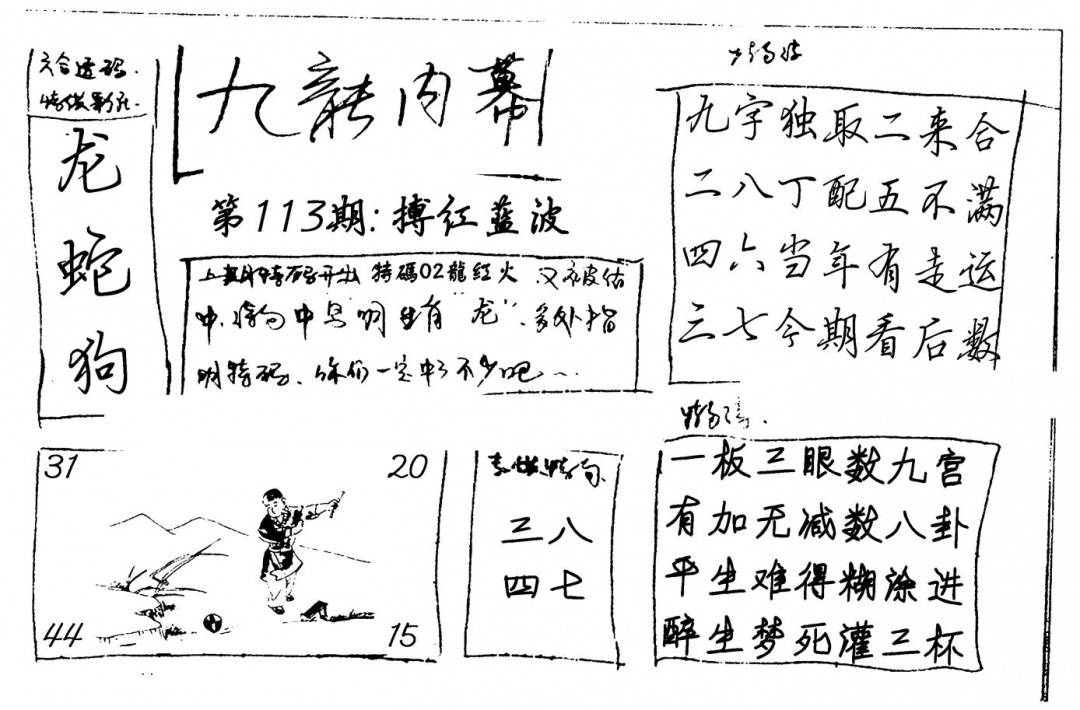 六合透码
龙
蛇
狗
九龍内幕
第113期:搏红蓝波
上期特码开出 特碼02龍红火 又被估
中.特句中写明生肖“龙”.多处指
明特码.你们一定中了不少吧~
九字独取二来合
二八丁配五不满
四六当年有走运
三七今期看后数
31
20
44
15
三八
四七
一板三眼数九宫
有加无减数八卦
平生难得糊涂进
醉生梦死灌三杯